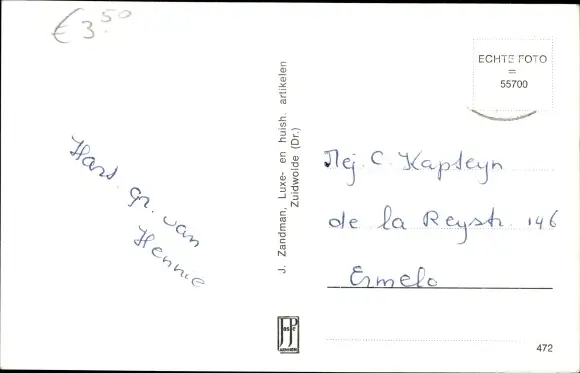 € 3.50
Hart. gr. van
Hennie
J. Zandman, Luxe- en huish. artikelen
Zuidwolde (Dr.)
ECHTE FOTO
=
55700
Mej. C. Kapteyn
de la Reystr. 146
Ermelo
472